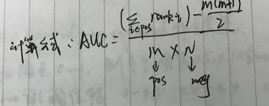 计算公式: AUC = ((∑ i∈pos rank i) - m(m+1)/2) / (M × N)
pos neg